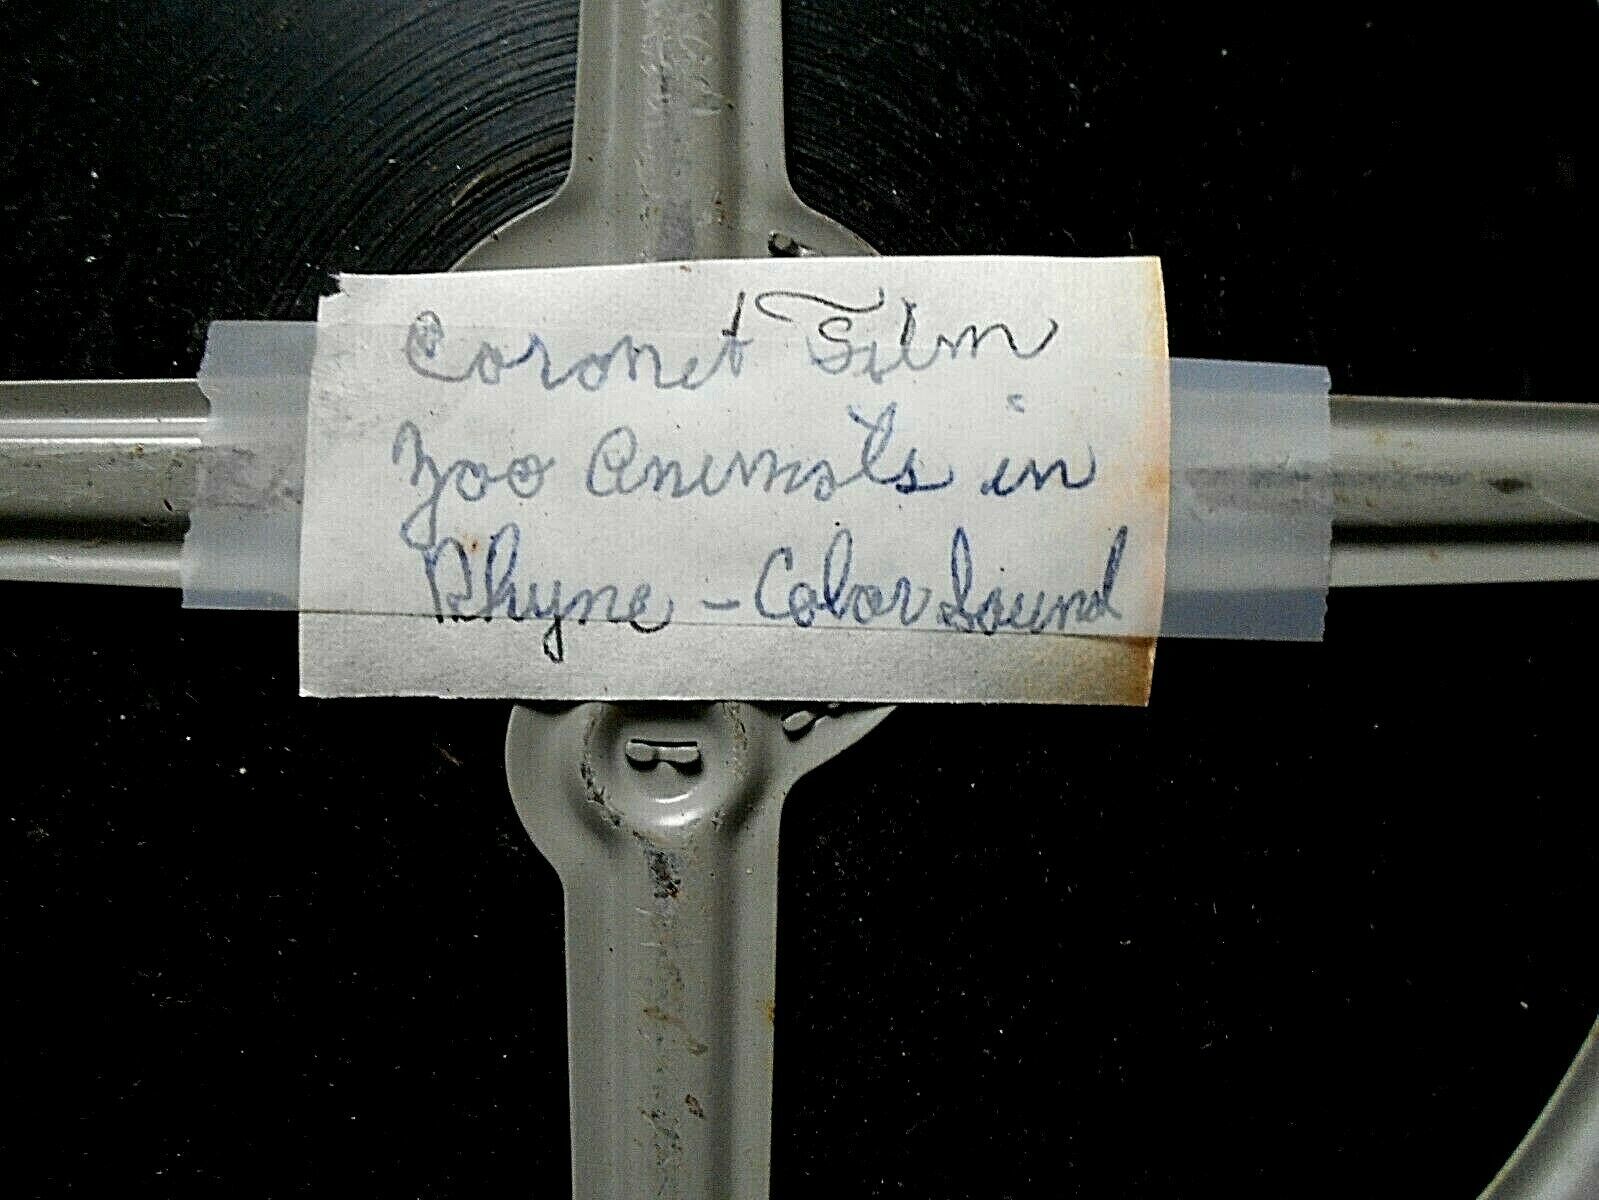 Coronet Film
Zoo Animals in
Rhyne - Color Sound